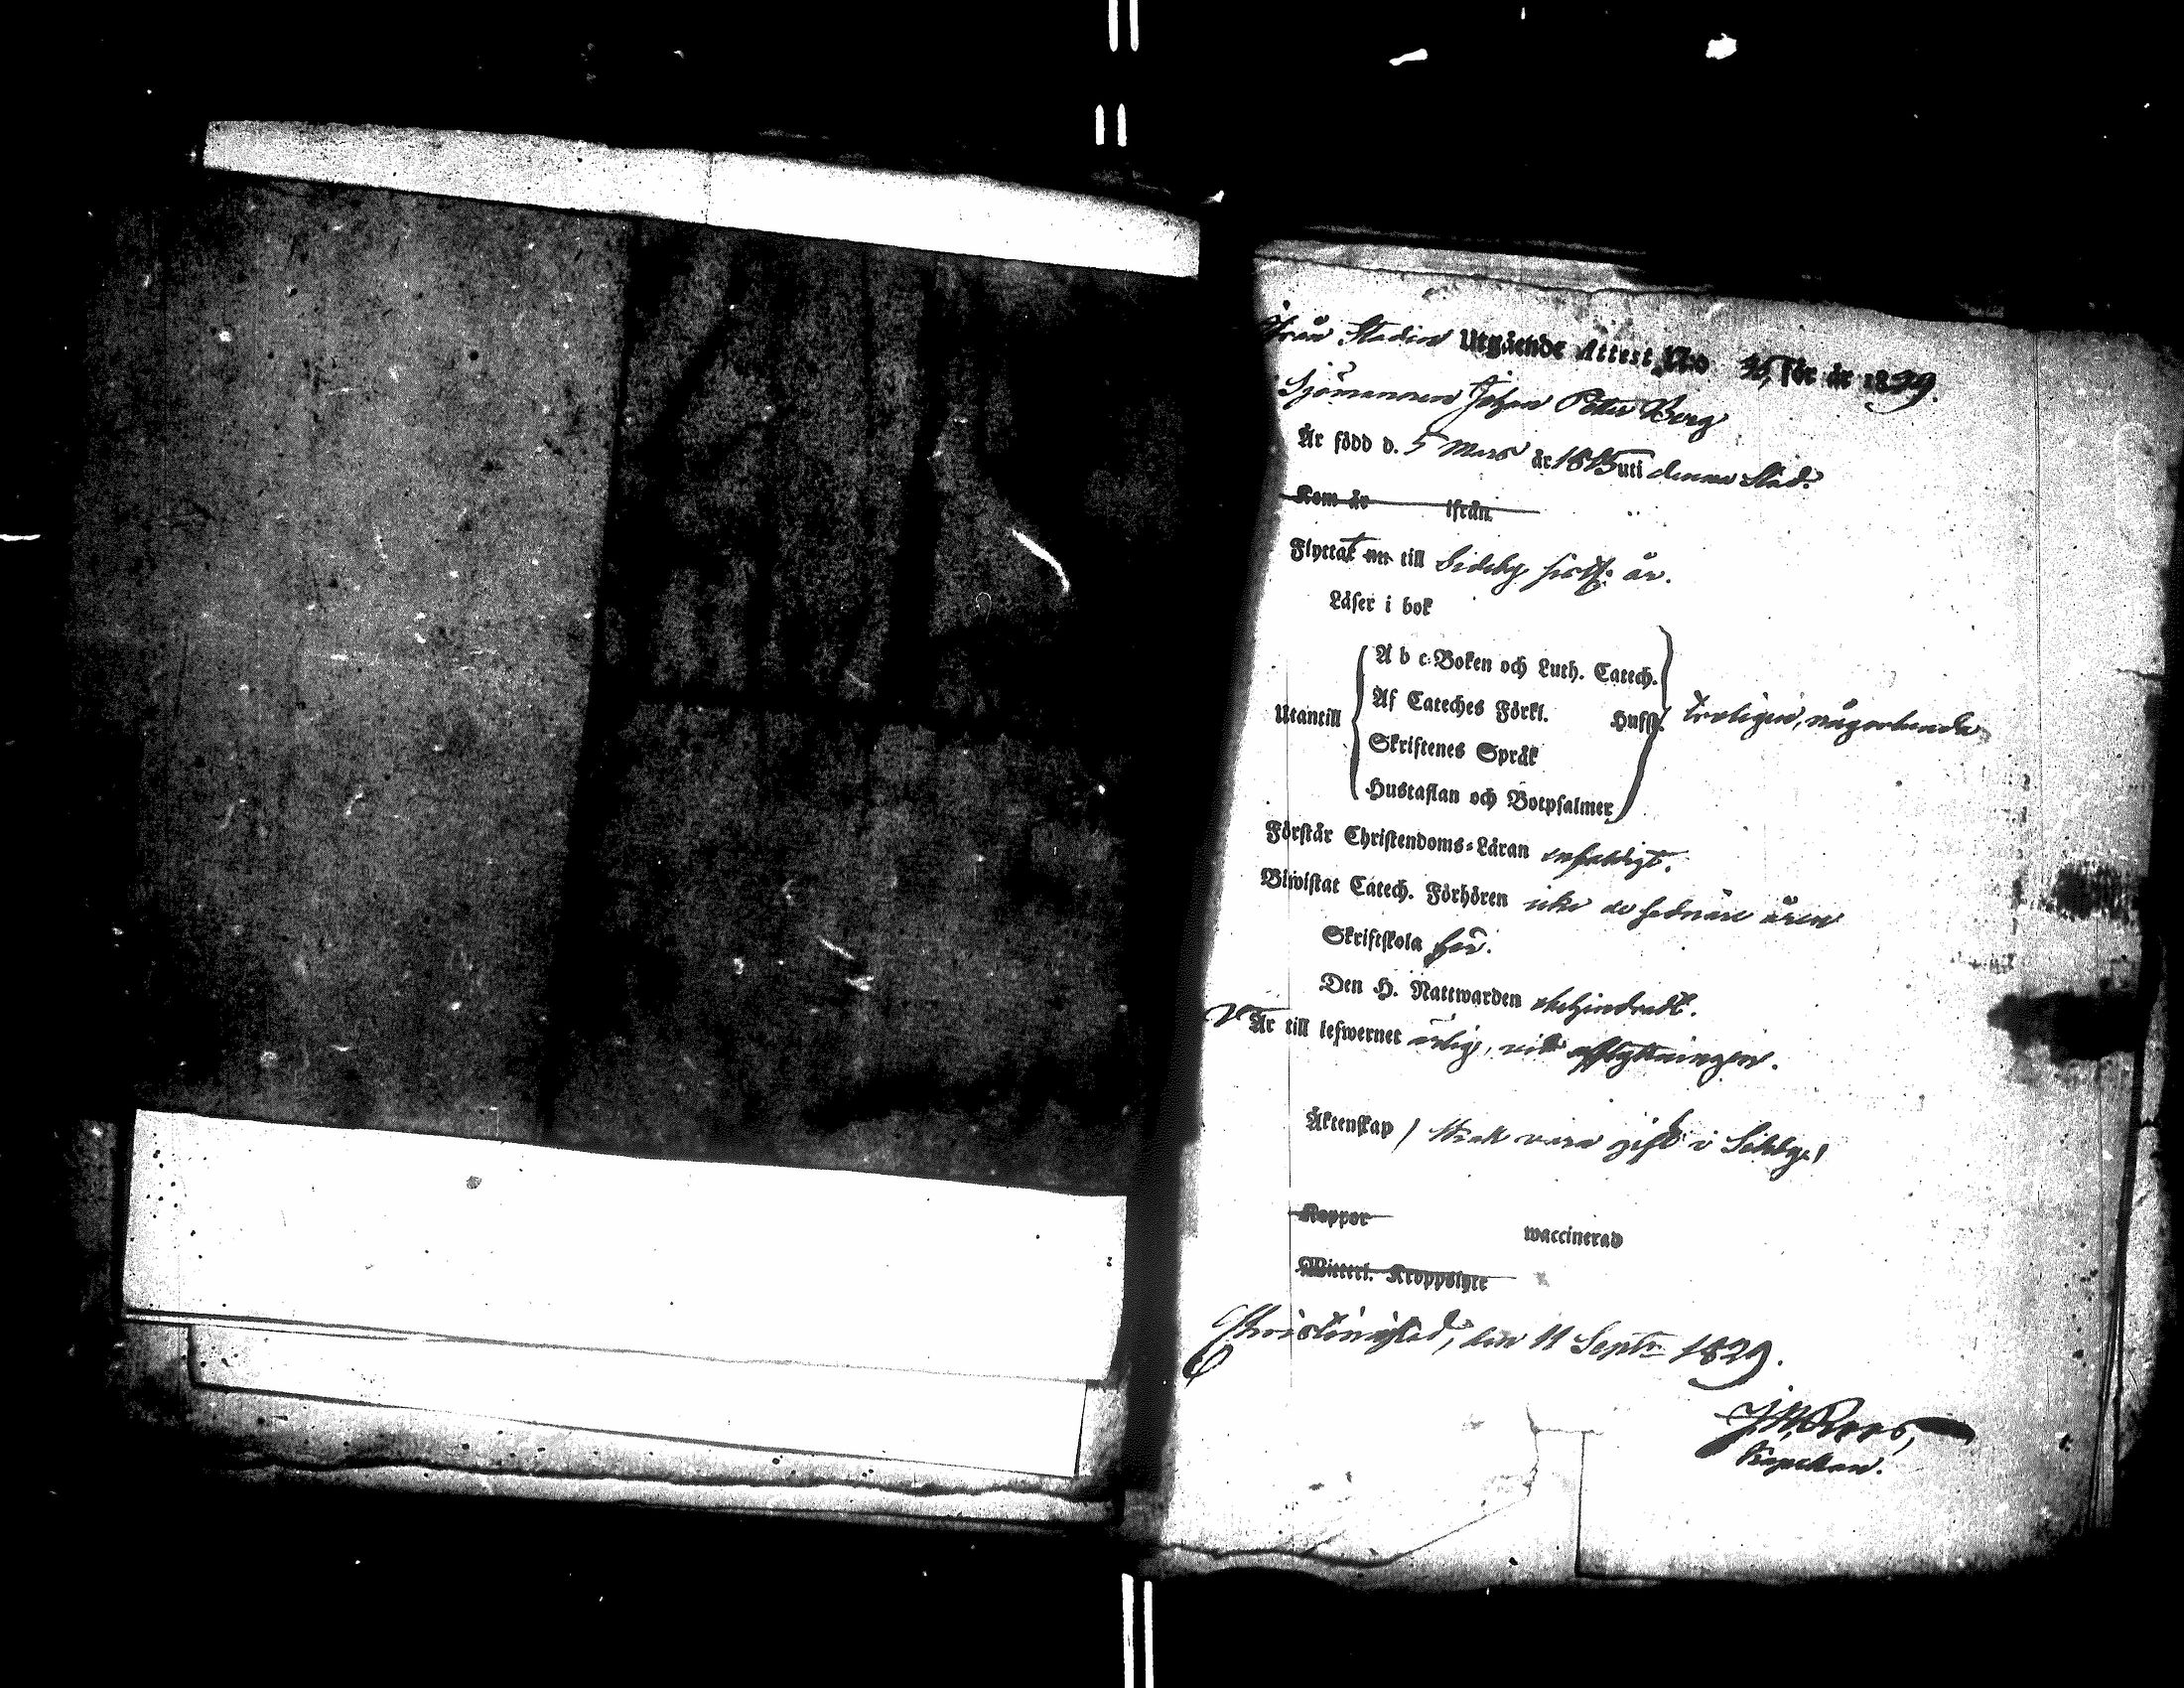 Från Staden Utgående Attest N:o 36, för år 1839.
Sjömannen Johan Petter Berg
Är född d. 5 Mars år 1815 uti denna Stad.
Kom år ifrån
Flyttat nu till Sideby sistl. år.
Läser i bok
A b c-Boken och Luth. Catech.
Af Cateches Förkl. Husfl.
Utantill troligen, någorlunda
Skriftenes Språk
Hustaflan och Botpsalmer
Förstår Christendoms-Läran enfaldigt.
Biwistat Catech. Förhören icke de sednare åren
Skriftskola här.
Den H. Nattwarden obehindradt.
Är till lefwernet ärlig, vid afflyttningen.
Äktenskap / skall vara gift i Sideby /
Koppor waccinerad
Witterl. Kroppslyte
Christinestad, den 11 Septr 1839.
Kapellan.